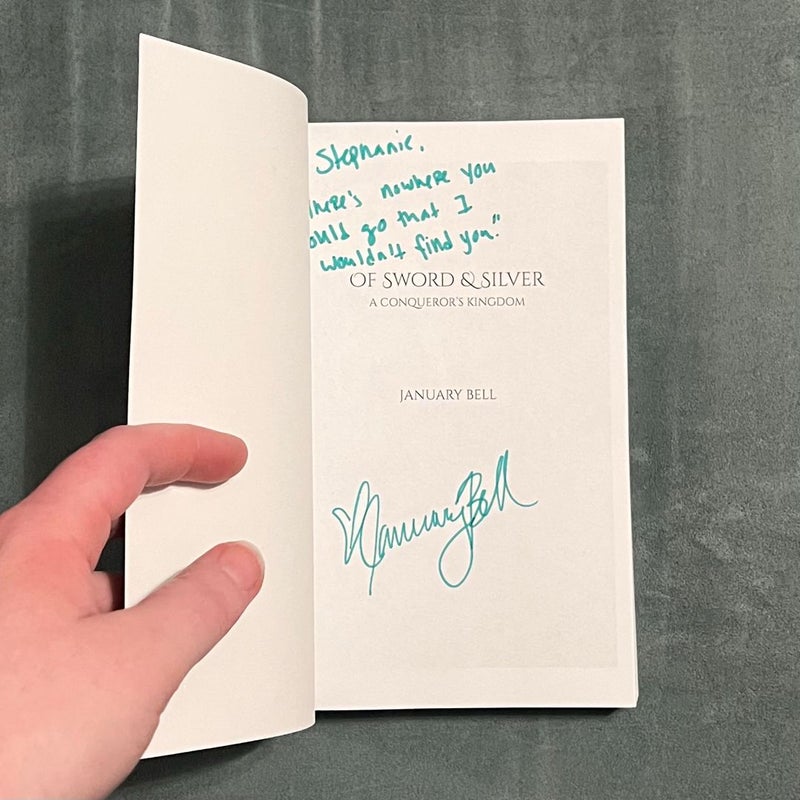 Stephanie,
here's nowhere you
ould go that I
wouldn't find you."
OF SWORD & SILVER
A CONQUEROR'S KINGDOM
JANUARY BELL
January Bell